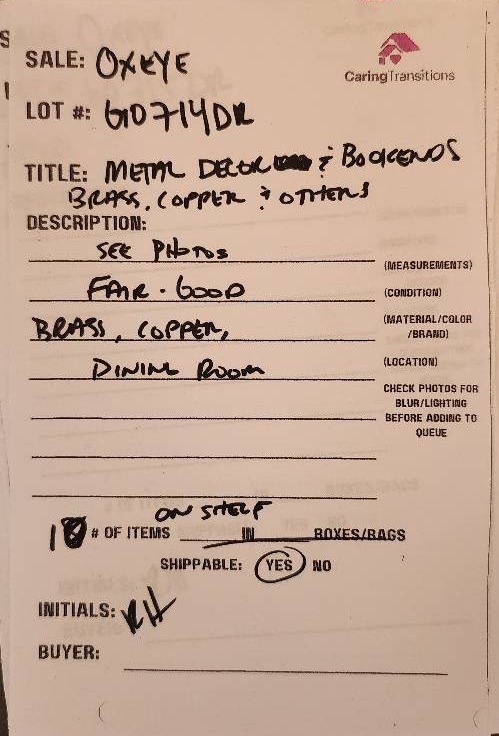 SALE: OXEYE
CaringTransitions
LOT #: 610714DR
TITLE: METAL DECOR & BOOKENDS
BRASS, COPPER & OTHERS
DESCRIPTION:
SEE PHOTOS (MEASUREMENTS)
FAIR - GOOD (CONDITION)
BRASS, COPPER, (MATERIAL/COLOR
/BRAND)
DINING ROOM (LOCATION)
CHECK PHOTOS FOR
BLUR/LIGHTING
BEFORE ADDING TO
QUEUE
ON SHELF
# OF ITEMS IN BOXES/BAGS
SHIPPABLE: YES NO
INITIALS: RH
BUYER: